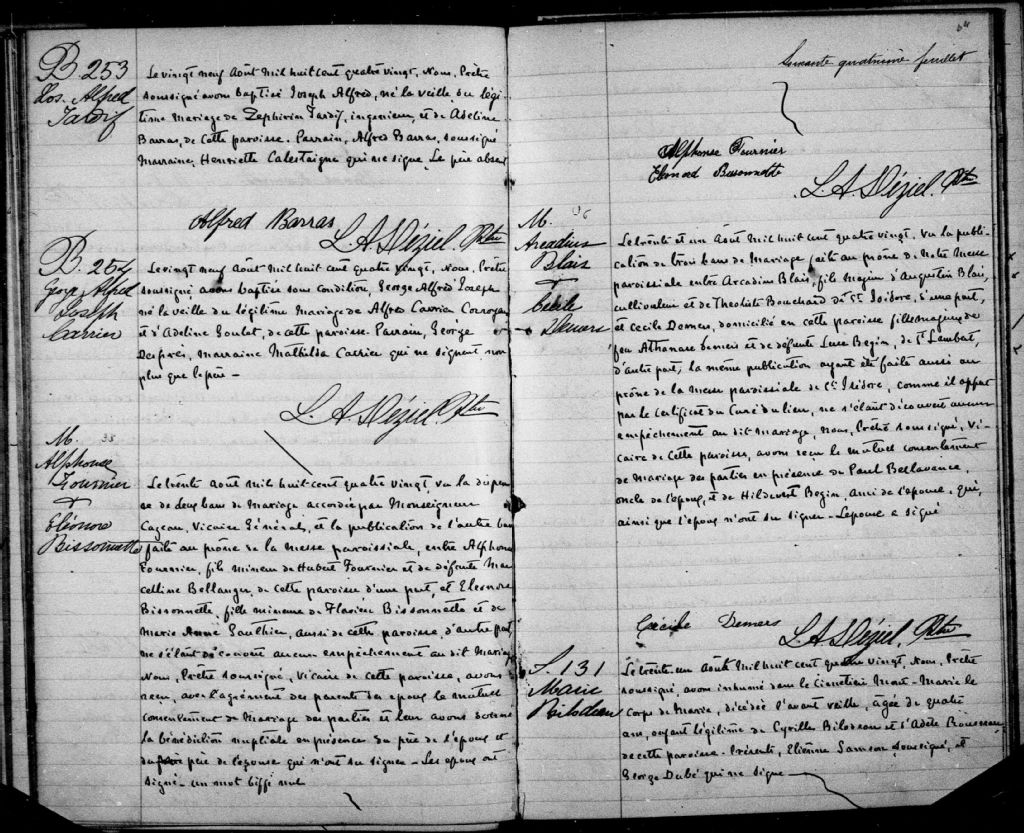 B. 253
Jos. Alfred
Tardif
Le vingt neuf Août Mil huit cent quatre vingt, Nous, Prêtre
soussigné avons baptisé Joseph Alfred, né la veille du légi-
time mariage de Zephirin Tardif, ingenieur, et de Adeline
Barras, de cette paroisse. Parrain, Alfred Barras, soussigné
Marraine, Henriette Calestaigne qui ne signe. Le père absent
Alfred Barras
L. A. Déziel, Ptre
B. 254
George Alfred
Joseph
Carrier
Le vingt neuf Août Mil huit cent quatre vingt, Nous, Prêtre
soussigné avons baptisé sous condition, George Alfred Joseph
né la veille du légitime Mariage de Alfred Carrier Corroyeur
et d'Adeline Goulet, de cette paroisse. Parrain, George
Després, Marraine Mathilda Carrier qui ne signent non
plus que le père —
L. A. Déziel, Ptre
M. 35
Alphonse
Fournier
+
Eléonore
Bissonnette
Le trente Août Mil huit cent quatre vingt, vu la dispen
se de deux bans de Mariage accordée par Monseigneur
Cazeau, Vicaire Général, et la publication de l'autre ban
faite au prône de la messe paroissiale, entre Alphonse
Fournier, fils mineur de Hubert Fournier et de défunte Mar
celline Bellanger, de cette paroisse d'une part, et Eleonore
Bissonnette, fille mineure de Flavien Bissonnette et de
Marie Anne Gauthier, aussi de cette paroisse, d'autre part,
ne s'étant découvert aucun empêchement au dit Mariage
Nous, Prêtre soussigné, Vicaire de cette paroisse, avons
reçu, avec l'agrément des parents des epoux le mutuel
consentement de Mariage des parties et leur avons donné
la bénédiction nuptiale en présence du père de l'epoux et
du père de l'epouse qui n'ont su signer — Les epoux ont
signé — un mot biffé nul
64
Soixante quatrième feuillet
Alphonse Fournier
Bissonnette
L. A. Déziel, Ptre
M. 36
Arcadius
Blais
+
Cécile
Demers
Le trente et un Août Mil huit cent quatre vingt, Vu la publi-
cation de trois bans de Mariage faite au prône de Notre Messe
paroissiale entre Arcadius Blais, fils Majeur d'Augustin Blais,
cultivateur et de Théotiste Bouchard de St. Isidore, d'une part,
et Cecile Demers, domicilié en cette paroisse fille majeure de
feu Athanase Demers et de défunte Luce Begin, de St. Lambert,
d'autre part; la même publication ayant été faite aussi au
prône de la Messe paroissiale de St. Isidore, comme il appert
par le certificat du Curé du lieu, ne s'étant découvert aucun
empêchement au dit mariage, Nous, Prêtre soussigné, Vi-
caire de Cette paroisse, avons reçu le mutuel consentement
de Mariage des parties en présence de Paul Bellavance,
oncle de l'epoux, et de Hildevert Begin, ami de l'epouse, qui,
ainsi que l'epoux n'ont su signer — L'epouse a signé
Cécile Demers
L. A. Déziel, Ptre
S. 131
Marie
Bilodeau
Le trente un Août Mil huit cent quatre vingt, Nous, Prêtre
soussigné, avons inhumé dans le Cimetière Mont-Marie le
corps de Marie, décédée l'avant veille, agée de quatre
ans, enfant légitime de Cyrille Bilodeau et d'Adèle Rousseau
de cette paroisse. Présents, Etienne Samson soussigné, et
George Dubé qui ne signe —